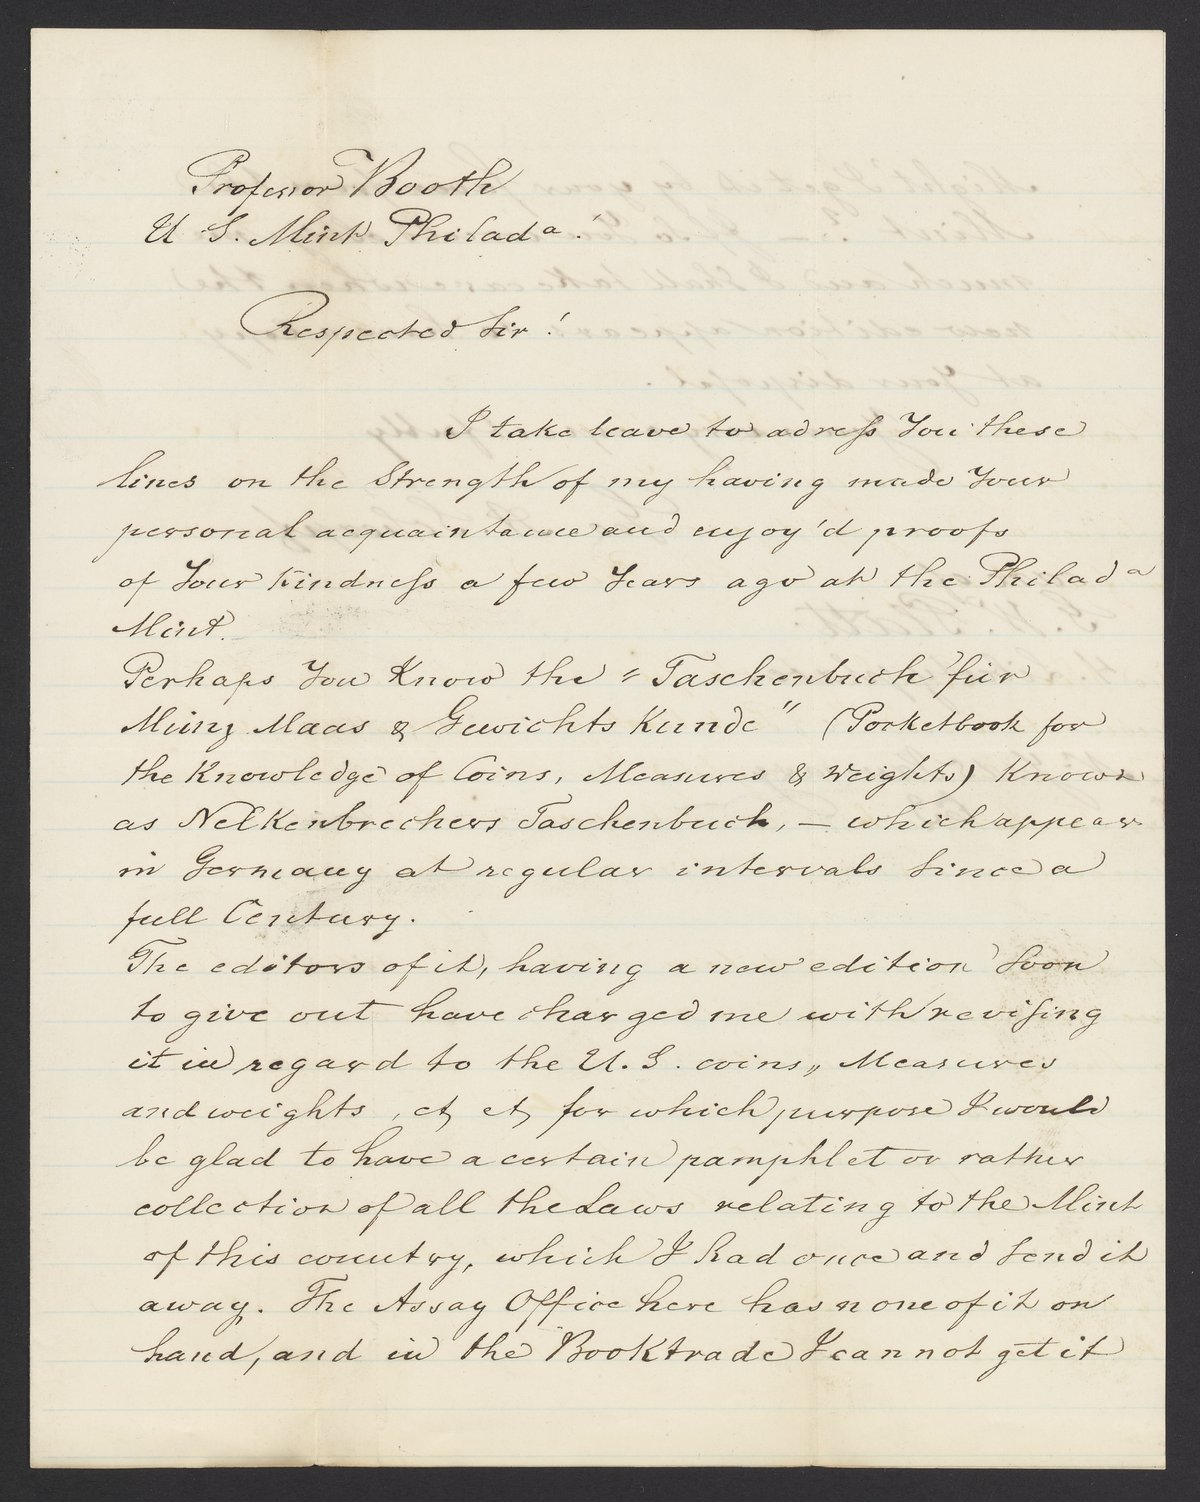 Professor Booth
U S. Mint Philada!
Respected Sir!
I take leave to adress You these
lines on the Strength of my having made Your
personal acquaintance and enjoy'd proofs
of Your Kindness a few Years ago at the Philada
Mint.
Perhaps You Know the "Taschenbuch für
Münz Maas & Gewichts Kunde" (Pocketbook for
the Knowledge of Coins, Measures & Weights) Known
as NelKenbrechers Taschenbuch, – which appear
in Germany at regular intervals Since a
full Century.
The editors of it, having a new edition Soon
to give out have charged me with revising
it in regard to the U. S. coins,, Measures
and weights, ct, ct, for which purpose I would
be glad to have a certain pamphlet or rather
collection of all the Laws relating to the Mint
of this country, which I had once and Send it
away. The Assay Office here has none of it on
hand, and in the Booktrade I can not get it